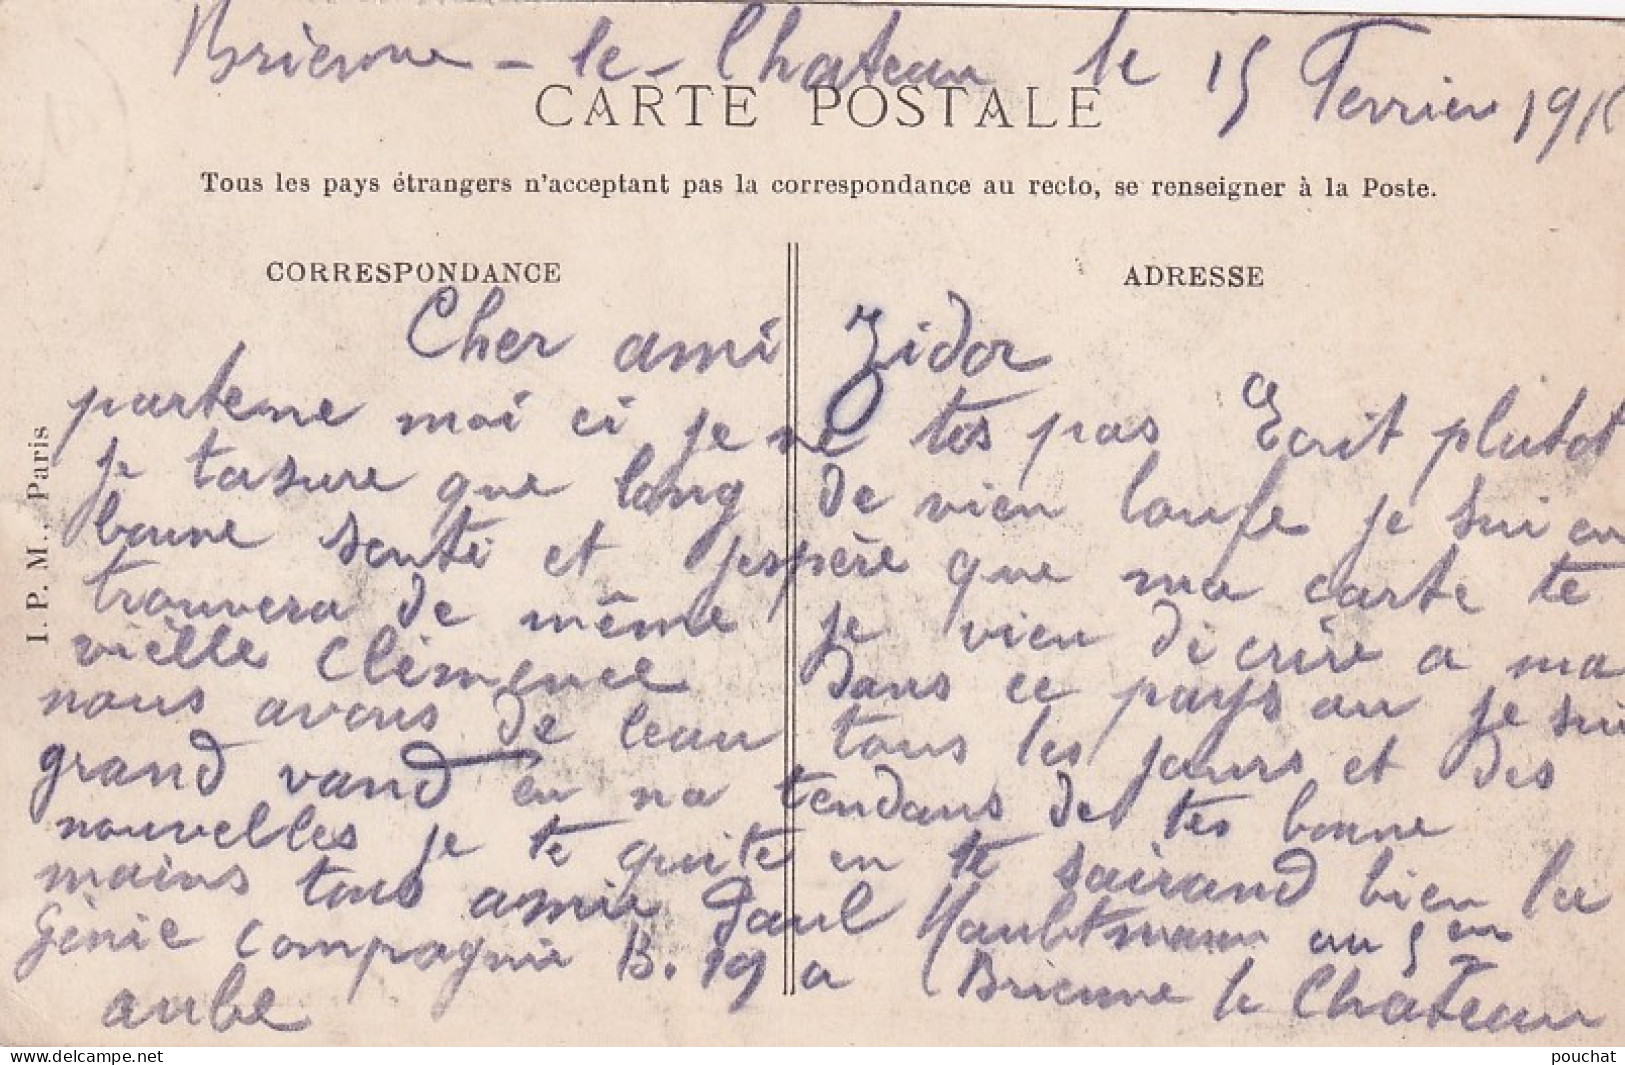 Brienne - le - Chateau le 15 Fevrier 191
CARTE POSTALE
Tous les pays étrangers n'acceptant pas la correspondance au recto, se renseigner à la Poste.
CORRESPONDANCE
ADRESSE
Cher ami Zidor
parteme moi ci je ne tes pas Ecrit plutot
je tasure que long de vien loufe je sui en
bonne santé et jespère que ma carte te
trouvera de même je vien décrire a ma
vielle Clémence Dans ce pays ou je sui
nous avons de leau tous les jours et des
grand vand en na tendans de tes bonne
nouvelles je te quite en te sairand bien les
mains tous amie Paul Haubtmann au 5 em
Génie compagnie B. 19 a Brienne le Chateau
aube
I. P. M., Paris
pouchat